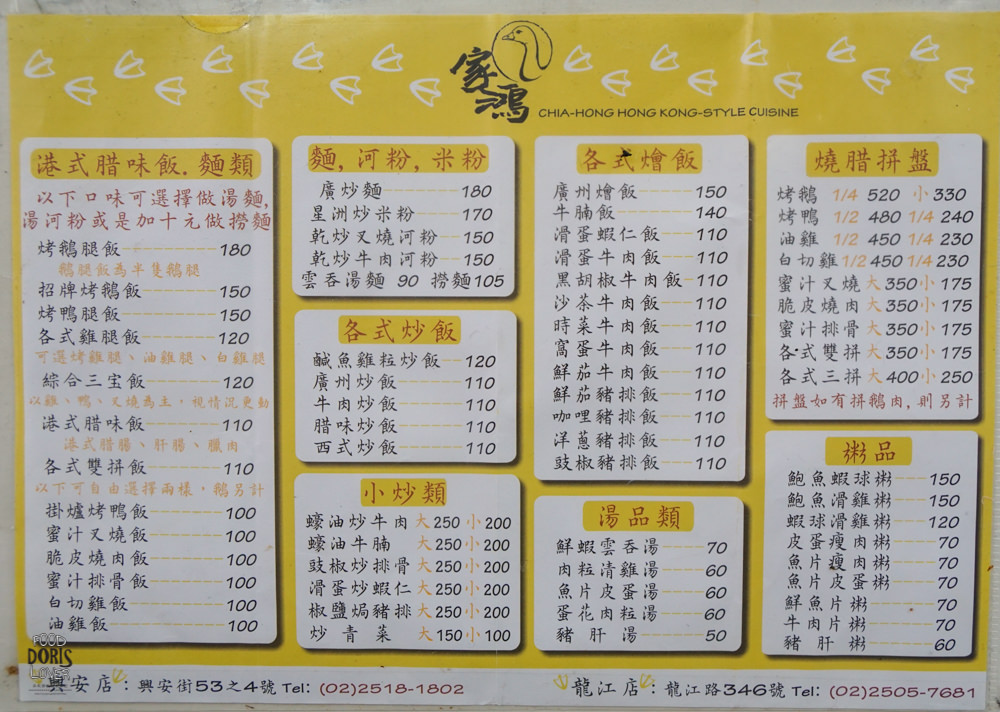 家鴻
CHIA-HONG HONG KONG-STYLE CUISINE
港式腊味飯.麵類
以下口味可選擇做湯麵,
湯河粉或是加十元做撈麵
烤鵝腿飯 180
鵝腿飯為半隻鵝腿
招牌烤鵝飯 150
烤鴨腿飯 150
各式雞腿飯 120
可選烤雞腿、油雞腿、白雞腿
綜合三宝飯 120
以雞、鴨、叉燒為主,視情況更動
港式腊味飯 110
港式腊腸、肝腸、臘肉
各式雙拼飯 110
以下可自由選擇兩樣,鵝另計
掛爐烤鴨飯 100
蜜汁叉燒飯 100
脆皮燒肉飯 100
蜜汁排骨飯 100
白切雞飯 100
油雞飯 100
麵,河粉,米粉
廣炒麵 180
星洲炒米粉 170
乾炒叉燒河粉 150
乾炒牛肉河粉 150
雲吞湯麵 90 撈麵105
各式炒飯
鹹魚雞粒炒飯 120
廣州炒飯 110
牛肉炒飯 110
腊味炒飯 110
西式炒飯 110
小炒類
蠔油炒牛肉 大250 小200
蠔油牛腩 大250 小200
豉椒炒排骨 大250 小200
滑蛋炒蝦仁 大250 小200
椒鹽焗豬排 大250 小200
炒青菜 大150 小100
各式燴飯
廣州燴飯 150
牛腩飯 140
滑蛋蝦仁飯 110
滑蛋牛肉飯 110
黑胡椒牛肉飯 110
沙茶牛肉飯 110
時菜牛肉飯 110
窩蛋牛肉飯 110
鮮茄牛肉飯 110
鮮茄豬排飯 110
咖哩豬排飯 110
洋蔥豬排飯 110
豉椒豬排飯 110
湯品類
鮮蝦雲吞湯 70
肉粒清雞湯 60
魚片皮蛋湯 60
蛋花肉粒湯 60
豬肝湯 50
燒腊拼盤
烤鵝 1/4 520 小 330
烤鴨 1/2 480 1/4 240
油雞 1/2 450 1/4 230
白切雞 1/2 450 1/4 230
蜜汁叉燒 大350 小175
脆皮燒肉 大350 小175
蜜汁排骨 大350 小175
各式雙拼 大350 小175
各式三拼 大400 小250
拼盤如有拼鵝肉,則另計
粥品
鮑魚蝦球粥 150
鮑魚滑雞粥 150
蝦球滑雞粥 120
皮蛋瘦肉粥 70
魚片瘦肉粥 70
魚片皮蛋粥 70
鮮魚片粥 70
牛肉片粥 70
豬肝粥 60
興安店:興安街53之4號 Tel: (02)2518-1802
龍江店:龍江路346號 Tel: (02)2505-7681
FOOD
DORIS
LOVES